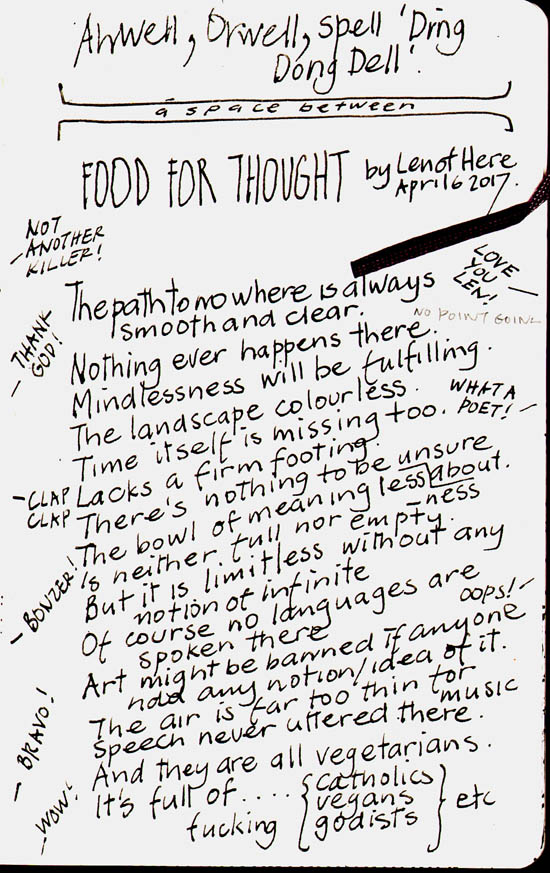 Ahwell, Orwell, spell 'Ding
Dong Dell'.
a space between
FOOD FOR THOUGHT by Len of Here
April 6 2017.
NOT
ANOTHER
KILLER!
LOVE
YOU
LEN!
The path to no where is always
smooth and clear.
NO POINT GOING
THANK
GOD!
Nothing ever happens there.
Mindlessness will be fulfilling.
The landscape colourless.
WHAT A
POET!
Time itself is missing too.
Lacks a firm footing.
CLAP
CLAP
There's nothing to be unsure
about.
The bowl of meaningless
ness
Is neither full nor empty.
BONZER!
But it is limitless without any
notion of infinite
Of course no languages are
spoken there
OOPS!
Art might be banned if anyone
hold any notion/idea of it.
The air is far too thin for
music
BRAVO!
Speech never uttered there.
And they are all vegetarians.
WOW!
It's full of.... {catholics
fucking vegans } etc
godists